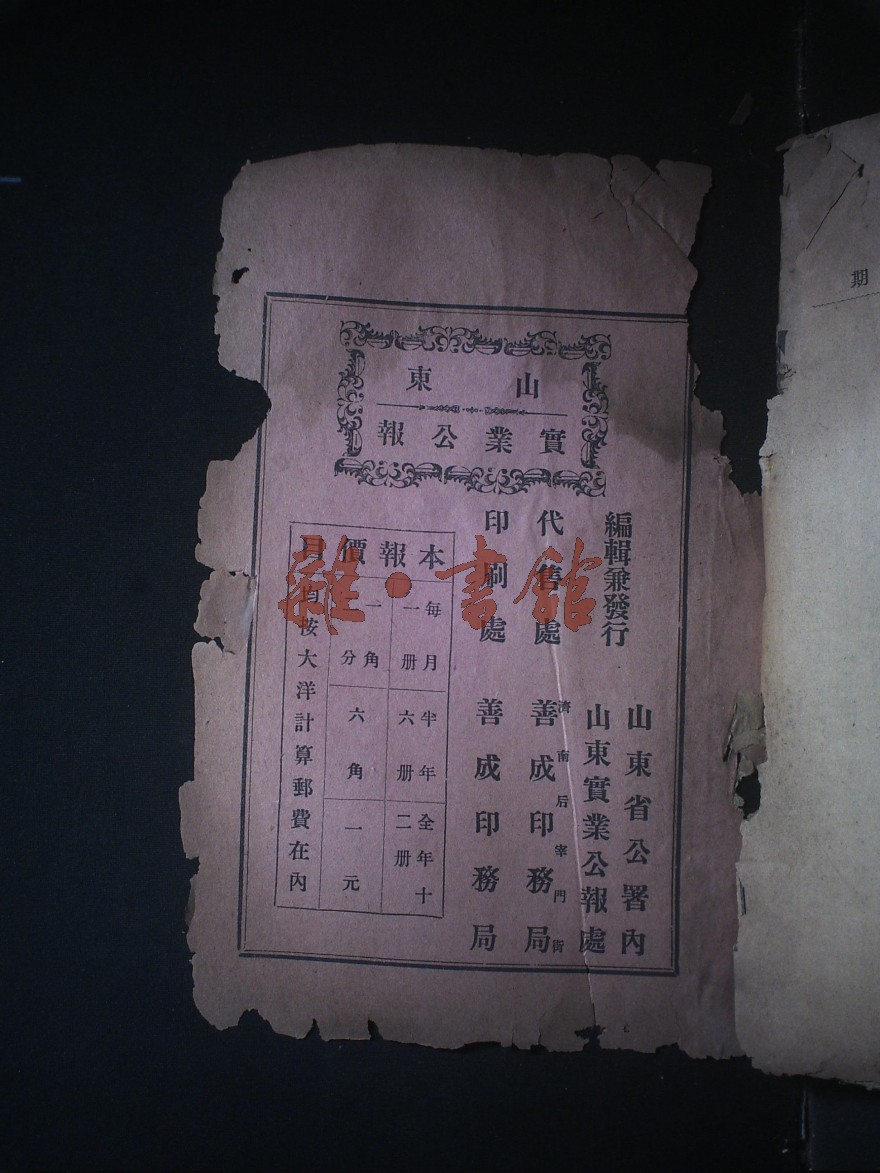 山東
實業公報
編輯兼發行
山東省公署內
山東實業公報處
代售處
濟南后宰門街
善成印務局
印刷處
善成印務局
本報價目
每月一册
一角一分
半年六册
六角
全年十二册
一元
均按大洋計算郵費在內
雜·書館
期